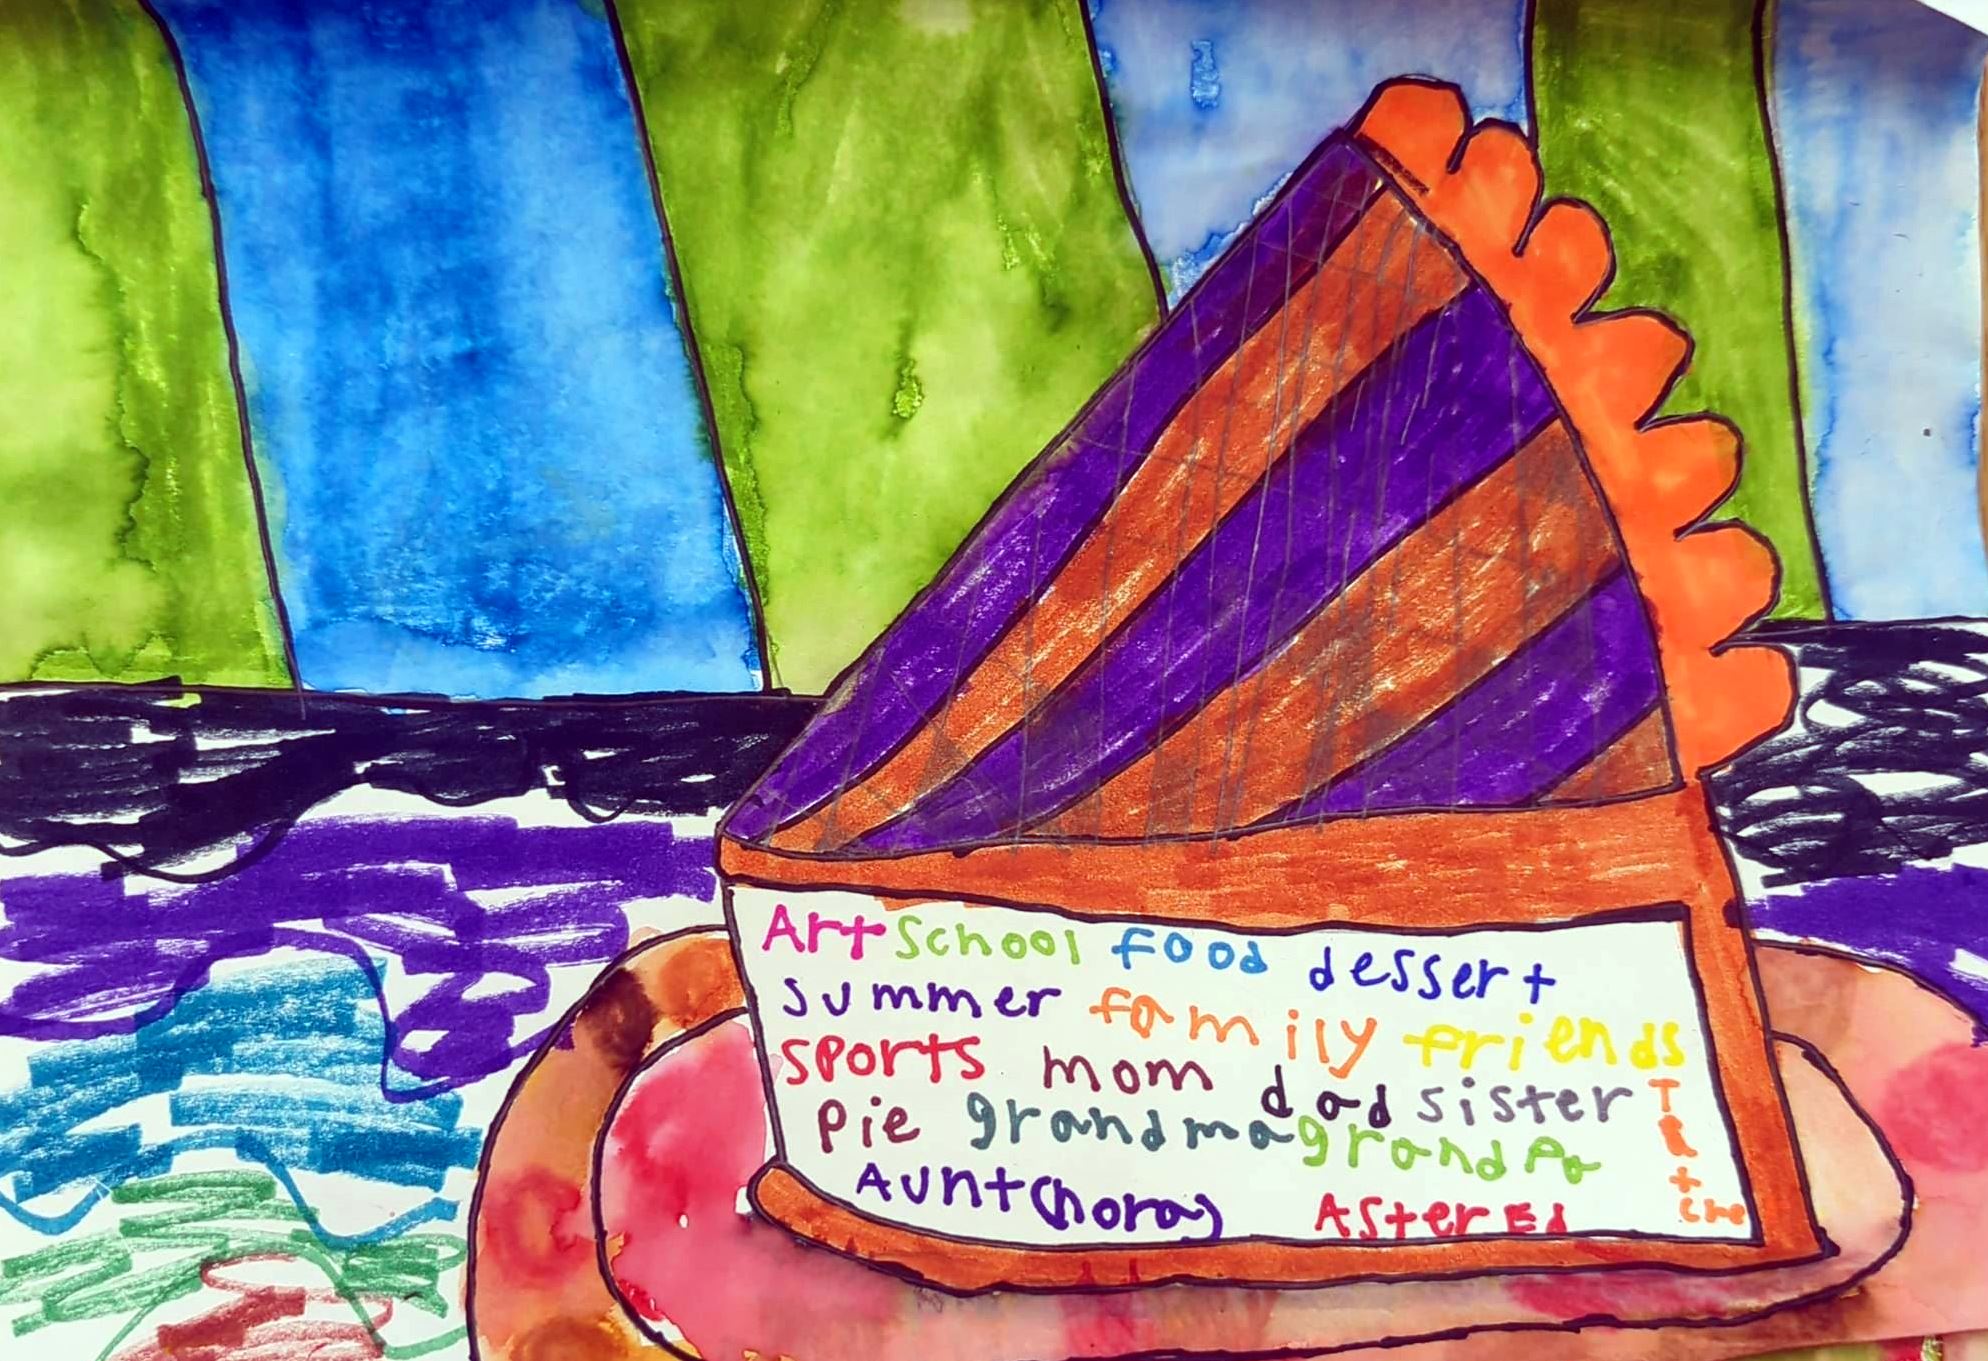 Art School food dessert
summer family friends
sports mom dad sister
pie grandma grandpa
Aunt (nora) Aster Ed